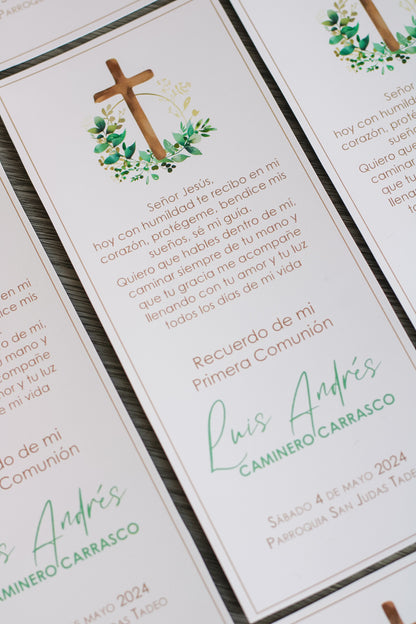 Parroquia San Judas Tadeo
Señor Jesús,
hoy con humildad te recibo en mi
corazón, protégeme, bendice mis
sueños, sé mi guía.
Quiero que hables dentro de mi,
caminar siempre de tu mano y
que tu gracia me acompañe
llenando con tu amor y tu luz
todos los días de mi vida
Recuerdo de mi
Primera Comunión
Luis Andrés
CAMINERO CARRASCO
Sábado 4 de mayo 2024
Parroquia San Judas Tadeo
en mi
mis
de mi,
mano y
acompañe
y tu luz
mi vida
de mi
Comunión
Andrés
CAMINERO CARRASCO
de mayo 2024
Judas Tadeo
Señor
hoy con humildad
corazón, protégeme
sueños
Quiero que hables
caminar siempre
que tu gracia
llenando con
todos los